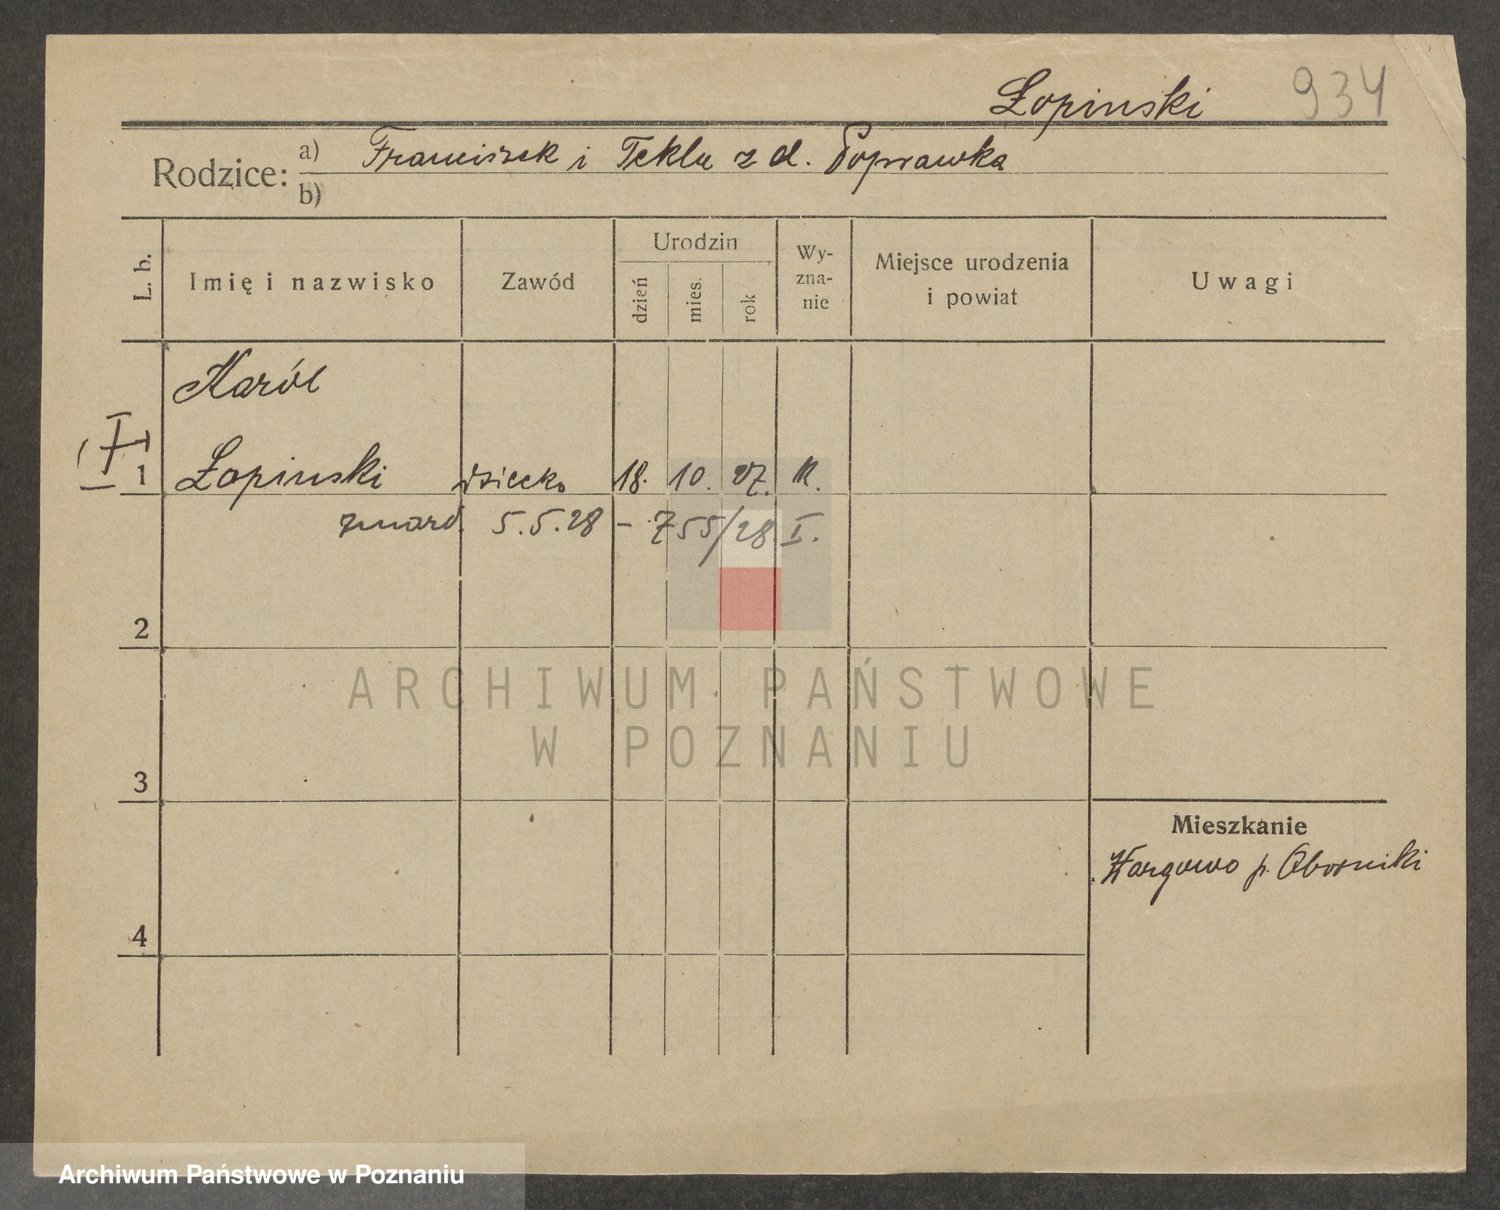 Łopinski 934
Rodzice: a) Franciszek i Tekla z d. Poprawka
b)
L. b. Imię i nazwisko Zawód Urodzin dzień mies. rok Wy-zna-nie Miejsce urodzenia i powiat Uwagi
Karól
I
1 Łopinski dziecko 18. 10. 27. R.
zmarł. 5.5.28 – 755/28 I.
2
ARCHIWUM PAŃSTWOWE
W POZNANIU
3
Mieszkanie
Wargowo p. Oborniki
4
Archiwum Państwowe w Poznaniu